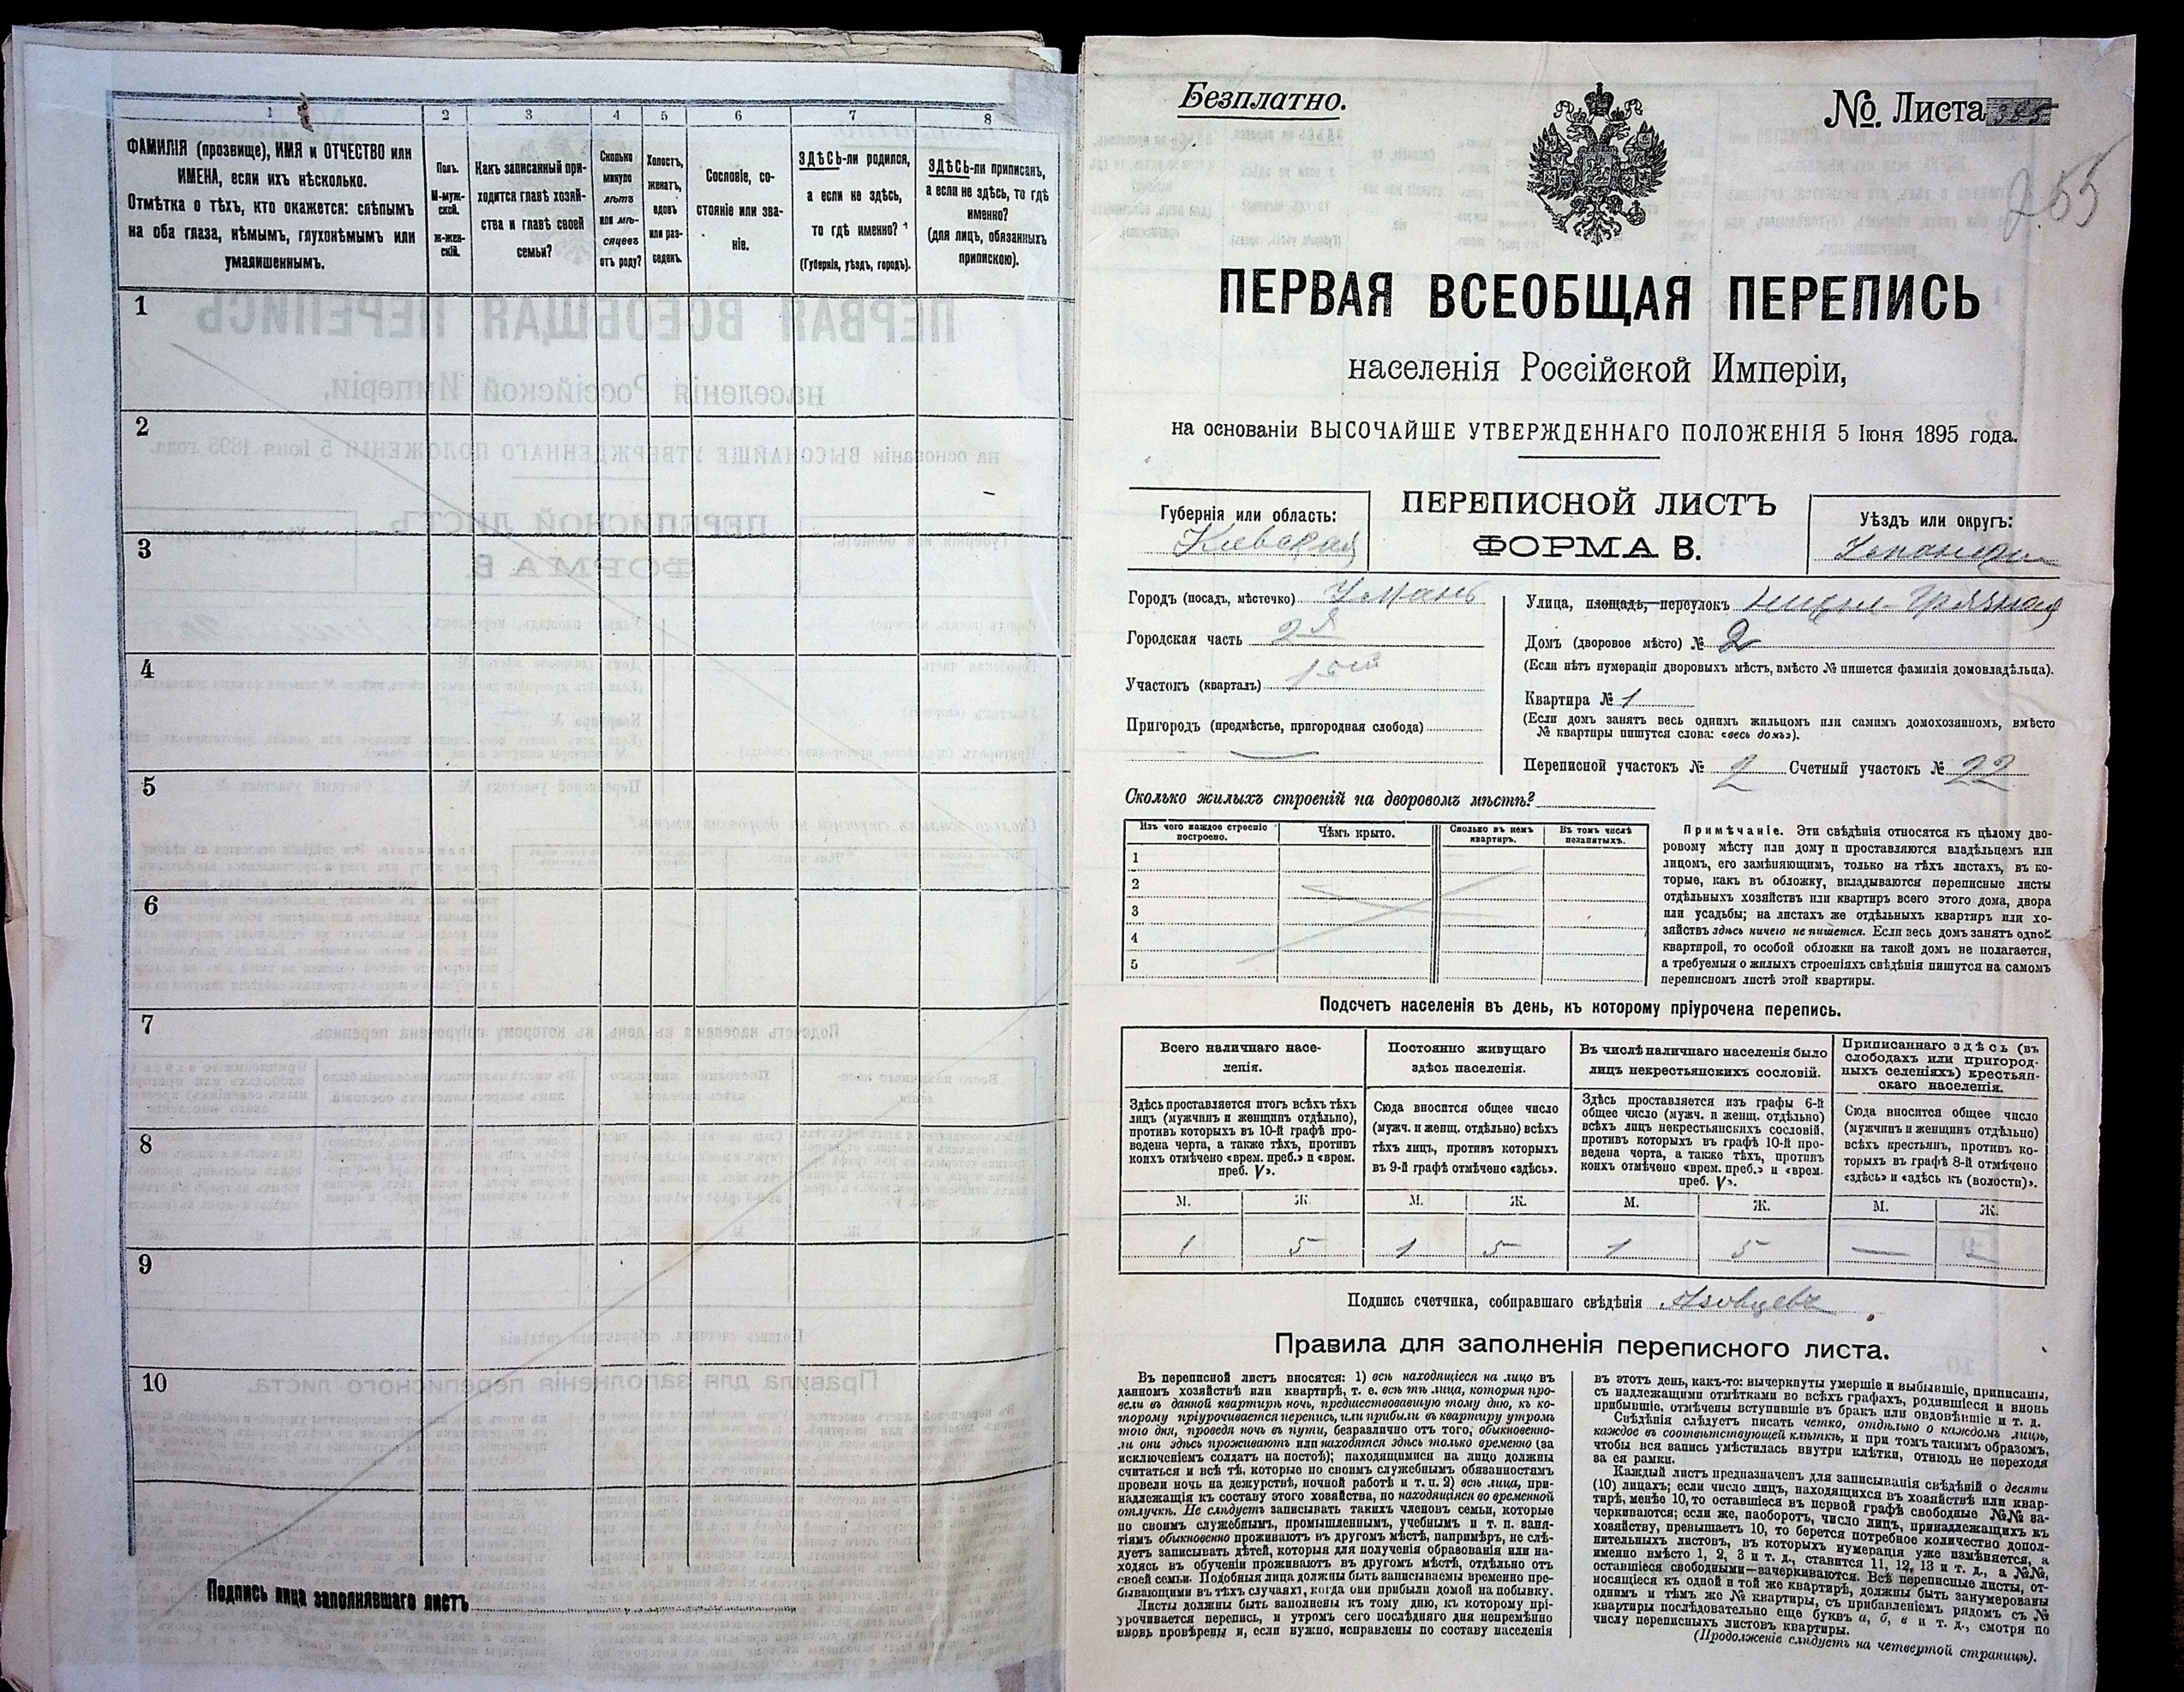 1
2
3
4
5
6
7
8
ФАМИЛІЯ (прозвище), ИМЯ и ОТЧЕСТВО или
ИМЕНА, если ихъ нѣсколько.
Отмѣтка о тѣхъ, кто окажется: слѣпымъ
на оба глаза, нѣмымъ, глухонѣмымъ или
умалишеннымъ.
Полъ.
М-муж-
ской.
Ж-жен-
скій.
Какъ записанный при-
ходится главѣ хозяй-
ства и главѣ своей
семьи?
Сколько
минуло
лѣтъ
или мѣ-
сяцевъ
отъ роду?
Холостъ,
женатъ,
вдовъ
или раз-
веденъ.
Сословіе, со-
стояніе или зва-
ніе.
ЗДѢСЬ-ли родился,
а если не здѣсь,
то гдѣ именно?
(Губернія, уѣздъ, городъ).
ЗДѢСЬ-ли приписанъ,
а если не здѣсь, то гдѣ
именно?
(для лицъ, обязанныхъ
припискою).
1
2
3
4
5
6
7
8
9
10
Подпись лица заполнявшаго листъ
Безплатно.
№ Листа 385
255
ПЕРВАЯ ВСЕОБЩАЯ ПЕРЕПИСЬ
населенія Россійской Имперіи,
на основаніи ВЫСОЧАЙШЕ УТВЕРЖДЕННАГО ПОЛОЖЕНІЯ 5 Іюня 1895 года.
Губернія или область:
Кіевская
ПЕРЕПИСНОЙ ЛИСТЪ
ФОРМА В.
Уѣздъ или округъ:
Городъ (посадъ, мѣстечко) Умань
Городская часть 2я
Участокъ (кварталъ) 1
Пригородъ (предмѣстье, пригородная слобода)
Улица, площадь, переулокъ Грязная
Домъ (дворовое мѣсто) № 2
(Если нѣтъ нумераціи дворовыхъ мѣстъ, вмѣсто № пишется фамилія домовладѣльца).
Квартира № 1
(Если домъ занятъ весь однимъ жильцомъ или самимъ домохозяиномъ, вмѣсто
№ квартиры пишутся слова: «весь домъ»).
Переписной участокъ № 2 Счетный участокъ № 22
Сколько жилыхъ строеній на дворовомъ мѣстѣ?
Изъ чего каждое строеніе
построено.
Чѣмъ крыто.
Сколько въ немъ
квартиръ.
Въ томъ числѣ
незанятыхъ.
1
2
3
4
5
Примѣчаніе. Эти свѣдѣнія относятся къ цѣлому дво-
ровому мѣсту или дому и проставляются владѣльцемъ или
лицомъ, его замѣняющимъ, только на тѣхъ листахъ, въ ко-
торые, какъ въ обложку, вкладываются переписные листы
отдѣльныхъ хозяйствъ или квартиръ всего этого дома, двора
или усадьбы; на листахъ же отдѣльныхъ квартиръ или хо-
зяйствъ здѣсь ничего не пишется. Если весь домъ занятъ одной
квартирой, то особой обложки на такой домъ не полагается,
а требуемыя о жилыхъ строеніяхъ свѣдѣнія пишутся на самомъ
переписномъ листѣ этой квартиры.
Подсчетъ населенія въ день, къ которому пріурочена перепись.
Всего наличнаго насе-
ленія.
Здѣсь проставляется итогъ всѣхъ тѣхъ
лицъ (мужчинъ и женщинъ отдѣльно),
противъ которыхъ въ 10-й графѣ про-
ведена черта, а также тѣхъ, противъ
коихъ отмѣчено «врем. преб.» и «врем.
преб. V».
Постоянно живущаго
здѣсь населенія.
Сюда вносится общее число
(мужч. и женщ. отдѣльно) всѣхъ
тѣхъ лицъ, противъ которыхъ
въ 9-й графѣ отмѣчено «здѣсь».
Въ числѣ наличнаго населенія было
лицъ некрестьянскихъ сословій.
Здѣсь проставляется изъ графы 6-й
общее число (мужч. и женщ. отдѣльно)
всѣхъ лицъ некрестьянскихъ сословій.
противъ которыхъ въ графѣ 10-й про-
ведена черта, а также тѣхъ, противъ
коихъ отмѣчено «врем. преб.» и «врем.
преб. V».
Приписаннаго здѣсь (въ
слободахъ или пригород-
ныхъ селеніяхъ) крестьян-
скаго населенія.
Сюда вносится общее число
(мужчинъ и женщинъ отдѣльно)
всѣхъ крестьянъ, противъ ко-
торыхъ въ графѣ 8-й отмѣчено
«здѣсь» и «здѣсь къ (волости)».
М. Ж. М. Ж. М. Ж. М. Ж.
1 5 1 5 1 5 —
Подпись счетчика, собиравшаго свѣдѣнія
Правила для заполненія переписного листа.
Въ переписной листъ вносятся: 1) всѣ находящіеся на лицо въ
данномъ хозяйствѣ или квартирѣ, т. е. всѣ тѣ лица, которыя про-
вели въ данной квартирѣ ночь, предшествовавшую тому дню, къ ко-
торому пріурочивается перепись, или прибыли въ квартиру утромъ
того дня, проведя ночь въ пути, безразлично отъ того, обыкновенно-
ли они здѣсь проживаютъ или находятся здѣсь только временно (за
исключеніемъ солдатъ на постоѣ); находящимися на лицо должны
считаться и всѣ тѣ, которые по своимъ служебнымъ обязанностямъ
провели ночь на дежурствѣ, ночной работѣ и т. п. 2) всѣ лица, при-
надлежащія къ составу этого хозяйства, но находящіяся во временной
отлучкѣ. Не слѣдуетъ записывать такихъ членовъ семьи, которые
по своимъ служебнымъ, промышленнымъ, учебнымъ и т. п. заня-
тіямъ обыкновенно проживаютъ въ другомъ мѣстѣ, напримѣръ, не слѣ-
дуетъ записывать дѣтей, которыя для полученія образованія или на-
ходясь въ обученіи проживаютъ въ другомъ мѣстѣ, отдѣльно отъ
своей семьи. Подобныя лица должны быть записываемы временно пре-
бывающими въ тѣхъ случаяхъ, когда они прибыли домой на побывку.
Листы должны быть заполнены къ тому дню, къ которому прі-
урочивается перепись, и утромъ сего послѣдняго дня непремѣнно
вновь провѣрены и, если нужно, исправлены по составу населенія
въ этотъ день, какъ-то: вычеркнуты умершіе и выбывшіе, приписаны,
съ надлежащими отмѣтками во всѣхъ графахъ, родившіеся и вновь
прибывшіе, отмѣчены вступившіе въ бракъ или овдовѣвшіе и т. д.
Свѣдѣнія слѣдуетъ писать четко, отдѣльно о каждомъ лицѣ,
каждое въ соотвѣтствующей клѣткѣ, и при томъ такимъ образомъ,
чтобы вся запись умѣстилась внутри клѣтки, отнюдь не переходя
за ея рамки.
Каждый листъ предназначенъ для записыванія свѣдѣній о десяти
(10) лицахъ; если число лицъ, находящихся въ хозяйствѣ или квар-
тирѣ, менѣе 10, то оставшіеся въ первой графѣ свободные №№ за-
черкиваются; если же, наоборотъ, число лицъ, принадлежащихъ къ
хозяйству, превышаетъ 10, то берется потребное количество допол-
нительныхъ листовъ, въ которыхъ нумерація уже измѣняется, а
именно вмѣсто 1, 2, 3 и т. д., ставится 11, 12, 13 и т. д., а №№,
оставшіеся свободными—зачеркиваются. Всѣ переписные листы, от-
носящіеся къ одной и той же квартирѣ, должны быть занумерованы
однимъ и тѣмъ же № квартиры, съ прибавленіемъ рядомъ съ №
квартиры послѣдовательно еще буквъ а, б, в и т. д., смотря по
числу переписныхъ листовъ квартиры.
(Продолженіе слѣдуетъ на четвертой страницѣ).